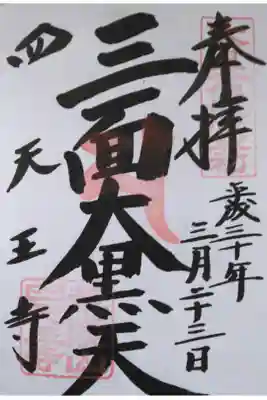 奉拝
歳三十年
三月二十三日
三面大黒天
四天王寺